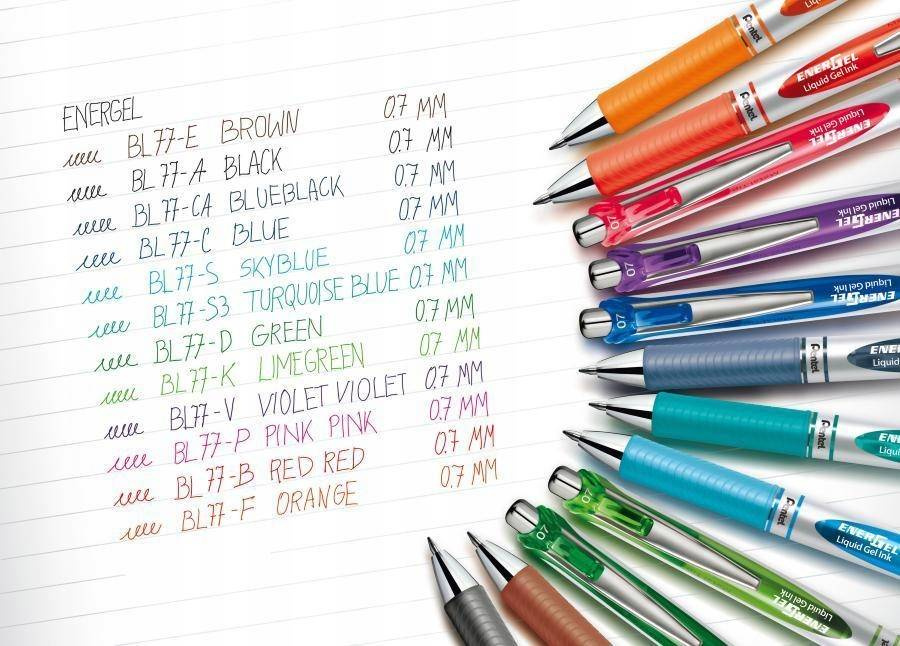 ENERGEL
BL77-E BROWN 0.7 MM
BL77-A BLACK 0.7 MM
BL77-CA BLUEBLACK 0.7 MM
BL77-C BLUE 0.7 MM
BL77-S SKYBLUE 0.7 MM
BL77-S3 TURQUOISE BLUE 0.7 MM
BL77-D GREEN 0.7 MM
BL77-K LIMEGREEN 0.7 MM
BL77-V VIOLET VIOLET 0.7 MM
BL77-P PINK PINK 0.7 MM
BL77-B RED RED 0.7 MM
BL77-F ORANGE 0.7 MM
Pentel
Pentel
ENERGEL
Liquid Gel Ink
07
ENERGEL
Liquid Gel Ink
07
ENERGEL
Liquid Gel Ink
07
ENERGEL
Liquid Gel Ink
Pentel
ENE
Liquid
Pentel
ENE
Liquid
Pentel
ENERGEL
Liquid Gel Ink
07
ENERGEL
Liquid Gel Ink
07